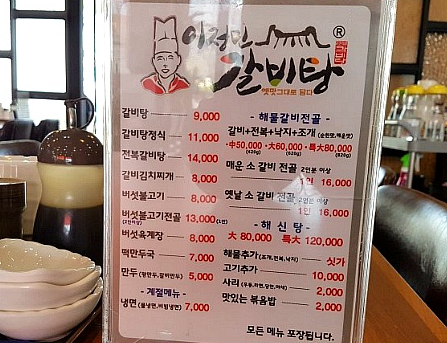 이정민 ®
갈비탕
옛맛그대로 담다
갈비탕 9,000
갈비탕정식 11,000
전복갈비탕 14,000
갈비김치찌개 8,000
버섯불고기 8,000
버섯불고기전골 13,000 (1인)
(2인이상)
버섯육계장 8,000
떡만두국 7,000
만두 (왕만두,갈비만두) 5,000
- 계절메뉴 -
냉면 (물냉면,비빔냉면) 7,000
- 해물갈비전골 -
갈비+전복+낙지+조개 (순한맛,매운맛)
·中50,000 ·大60,000 ·특大80,000
매운 소 갈비 전골 2인분 이상
1인 16,000
옛날 소 갈비 전골 2인분 이상
1인 16,000
- 해신탕 -
大 80,000 특大 120,000
해물추가 (조개,전복,낙지) 싯가
고기추가 10,000
사리 (우동,라면,당면,야채) 2,000
맛있는 볶음밥 2,000
모든 메뉴 포장됩니다.